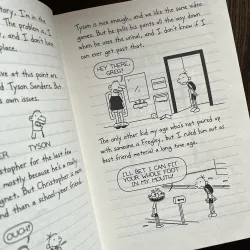 tary, I'm in the
The problem is, I
, and I don't have
place.
ve at this point are
nd Tyson Sanders. But
s own issues.
TYSON
ER
stopher for the last few
mostly because he's a really
agnet. But Christopher is not
nd than a school-year friend.
OUCH!
Tyson is nice enough, and we like the same video
games. But he pulls his pants all the way down
when he uses the urinal, and I don't know if I
can ever get past that.
HEY THERE,
GREG!
The only other kid my age who's not paired up
with someone is Fregley, but I ruled him out as
best friend material a long time ago.
I'LL BET I CAN FIT
YOUR WHOLE FOOT
IN MY MOUTH!